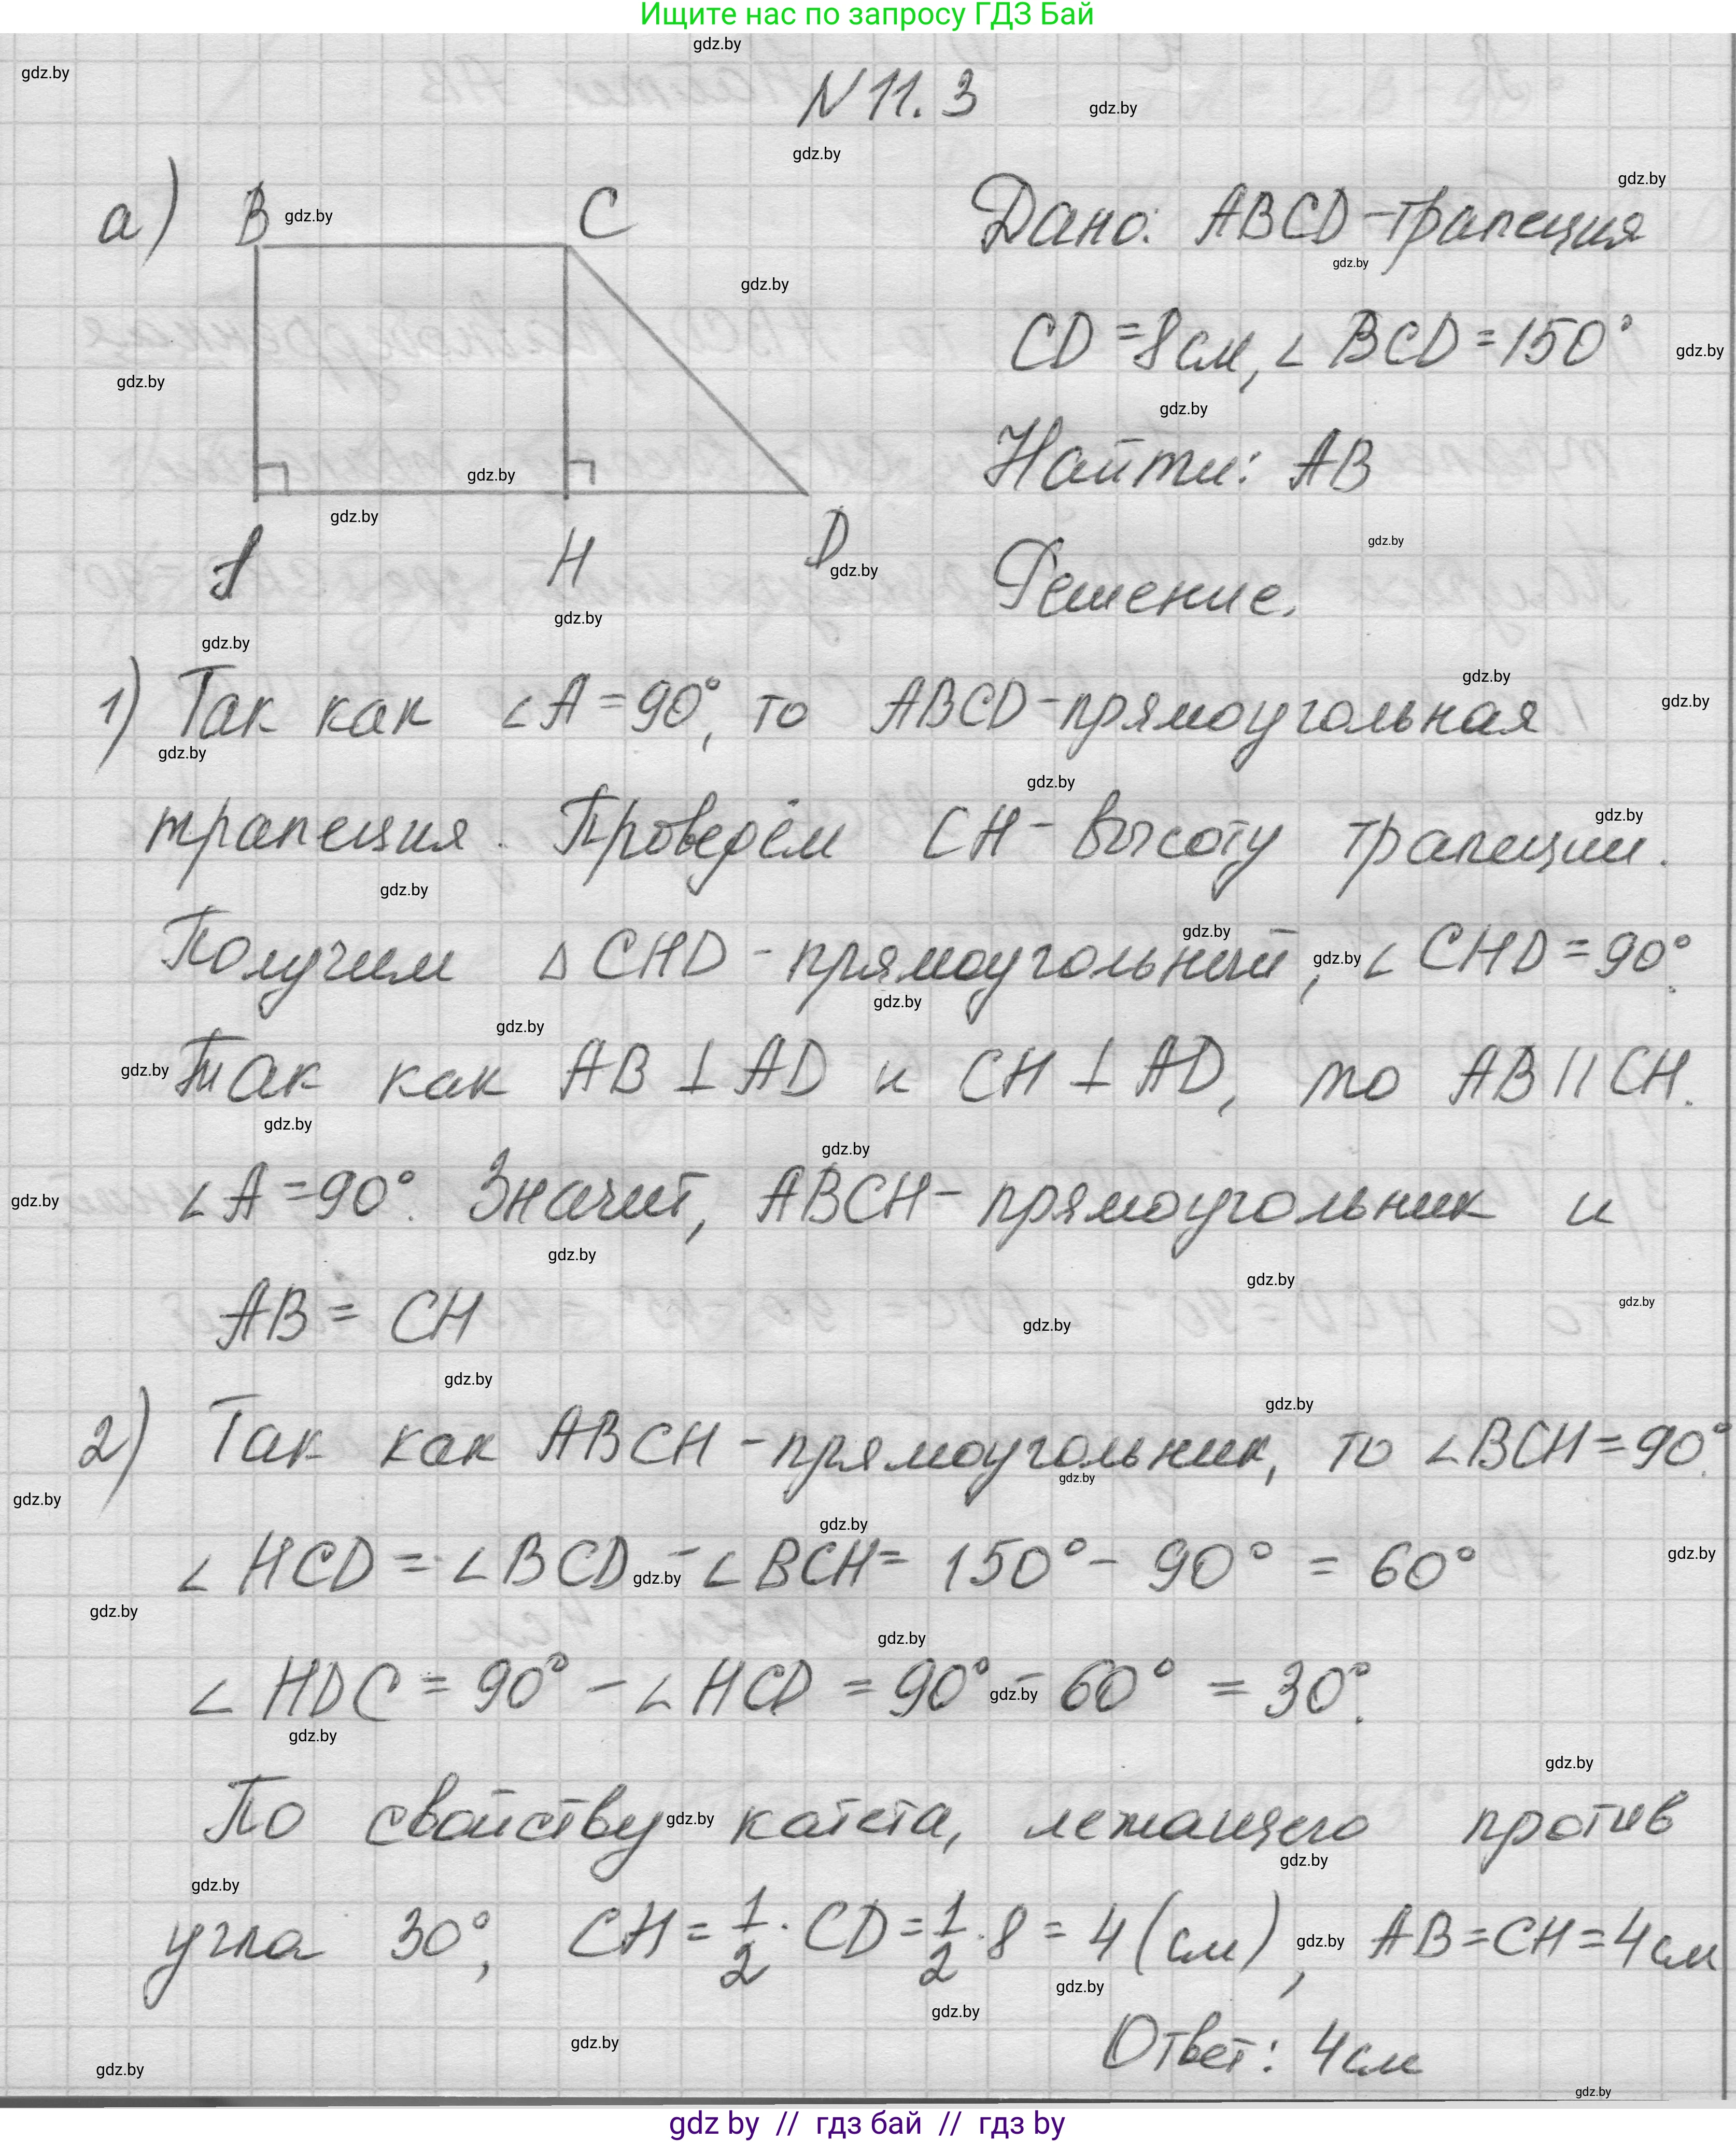 Ищите нас по запросу ГДЗ Бай
N 11.3
а) B C
A H D
Дано: ABCD-трапеция
CD=8см, ∠BCD=150°
Найти: AB
Решение.
1) Так как ∠A=90°, то ABCD-прямоугольная
трапеция. Проведём CH-высоту трапеции.
Получим △CHD-прямоугольный, ∠CHD=90°.
Так как AB⊥AD и CH⊥AD, то AB||CH.
∠A=90°. Значит, ABCH-прямоугольник и
AB=CH
2) Так как ABCH-прямоугольник, то ∠BCH=90°.
∠HCD=∠BCD-∠BCH=150°-90°=60°
∠HDC=90°-∠HCD=90°-60°=30°.
По свойству катета, лежащего против
угла 30°, CH=1/2·CD=1/2·8=4(см), AB=CH=4см
Ответ: 4см
gdz by // гдз бай // гдз by